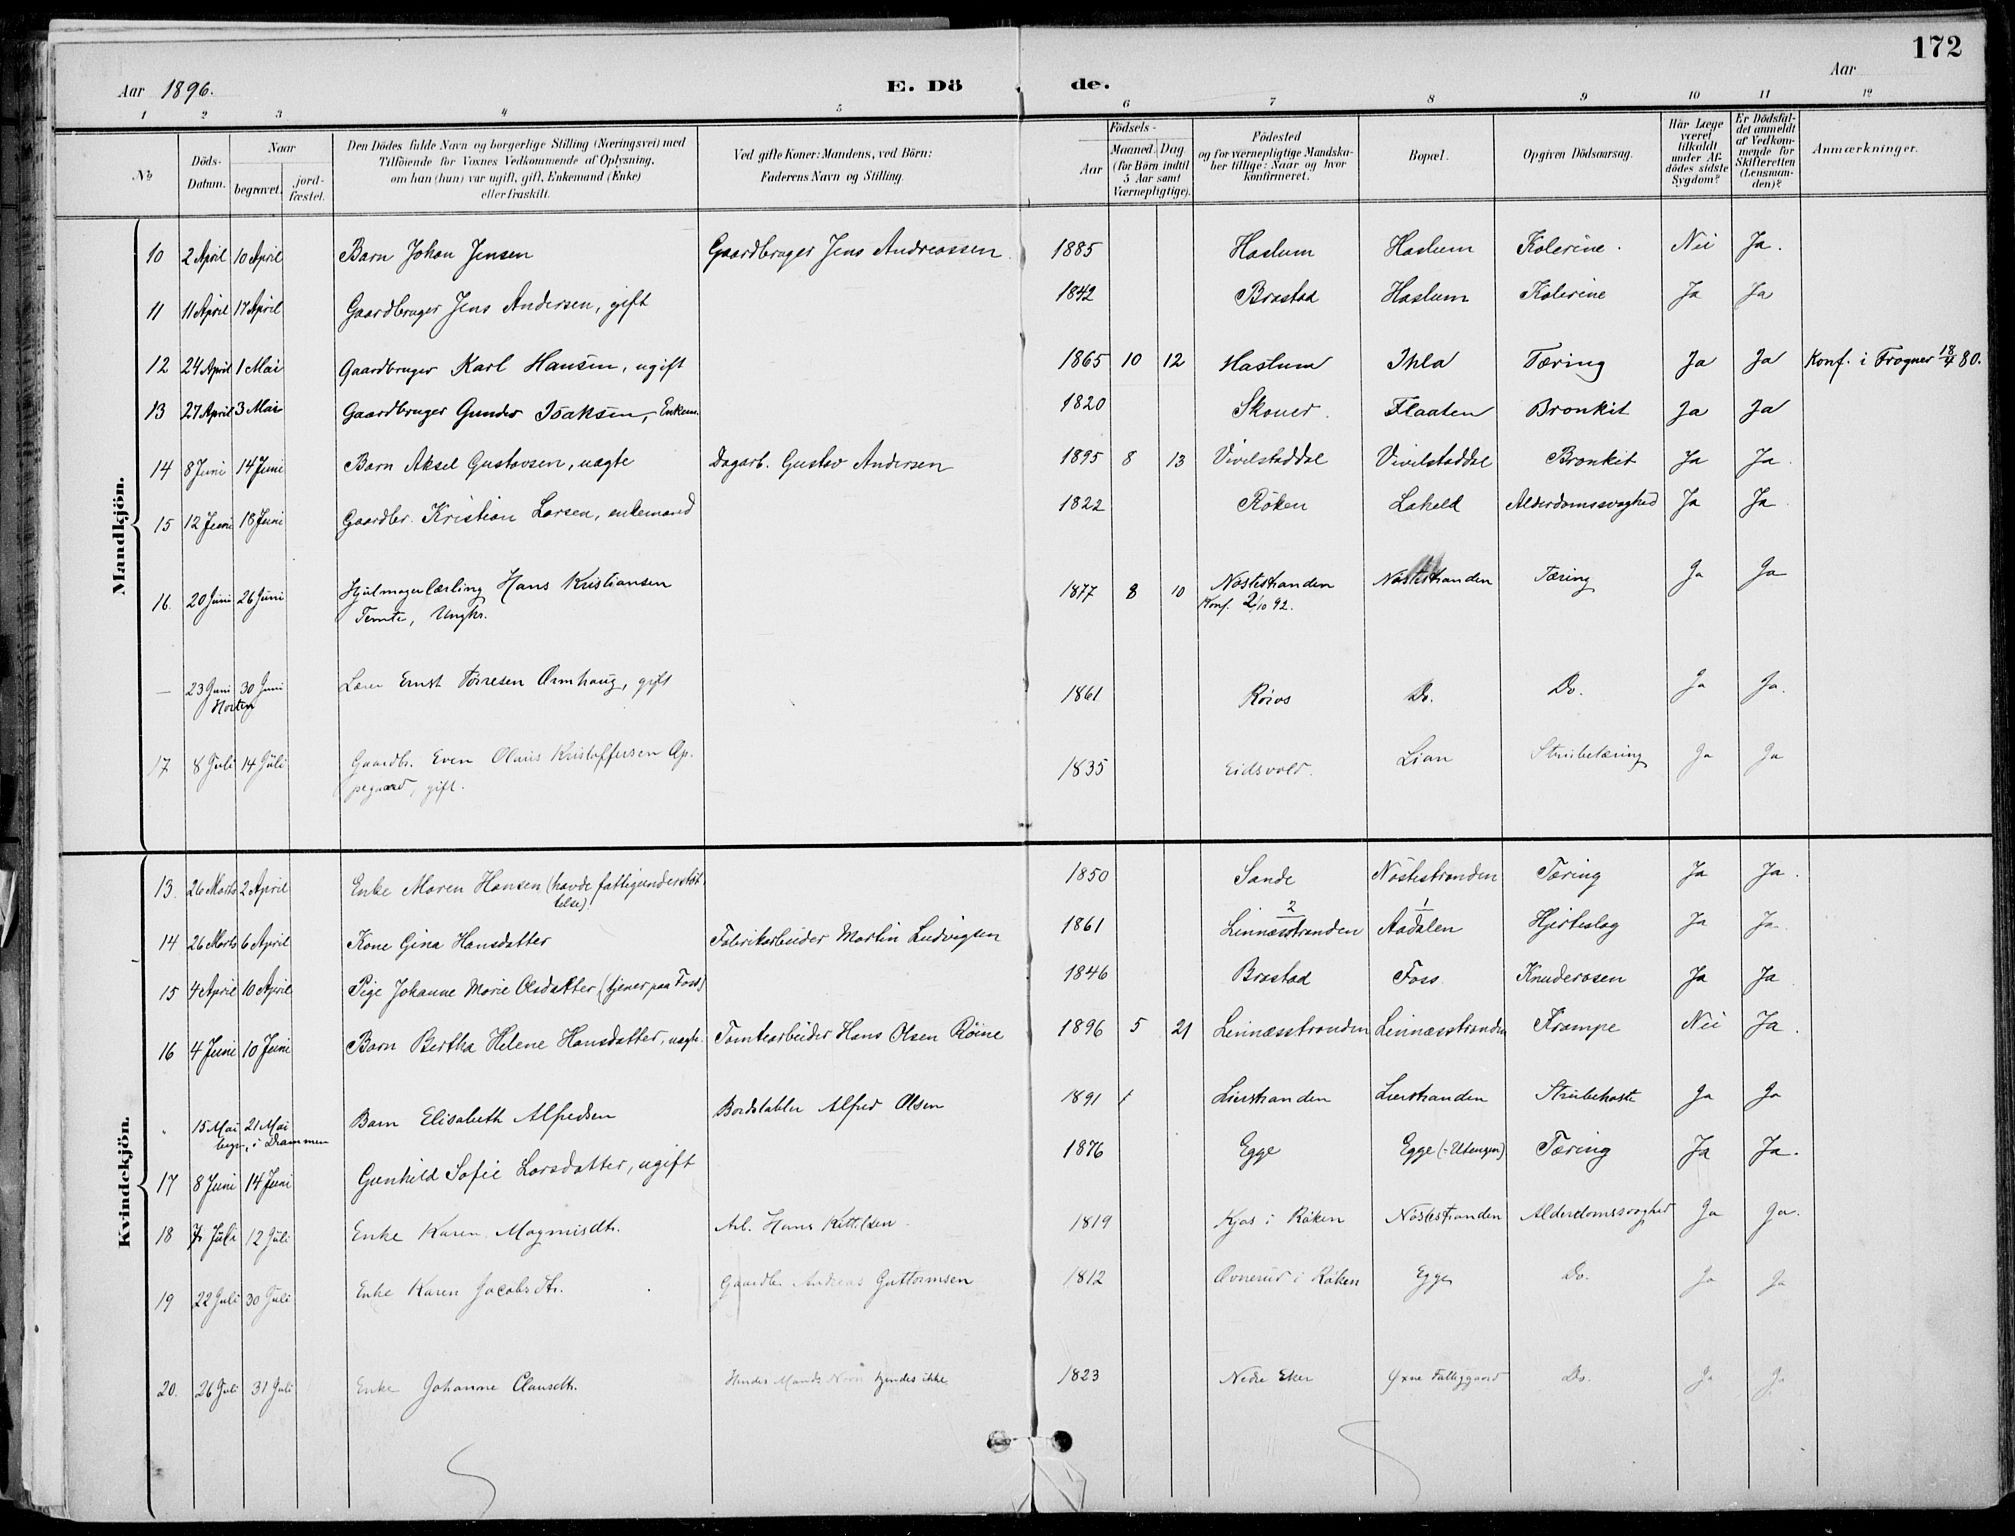 172
Aar 1896. E. Dö de. Aar
1 2 3 4 5 6 7 8 9 10 11 12
No Döds-Datum. Naar begravet. jordfæstet. Den Dödes fulde Navn og borgerlige Stilling (Næringsvei) med Tilföiende for Voxnes Vedkommende af Oplysning, om han (hun) var ugift, gift, Enkemand (Enke) eller fraskilt. Ved gifte Koner: Mandens, ved Börn: Faderens Navn og Stilling. Födsels- Aar Maaned. Dag. (for Börn indtil 5 Aar samt Værnepligtige). Födested og for værnepligtige Mandskaber tillige: Naar og hvor konfirmeret. Bopæl. Opgiven Dödsaarsag. Har Læge været tilkaldt under Afdödes sidste Sygdom? Er Dödsfaldet anmeldt af Vedkommende for Skifteretten (Lensmanden)? Anmærkninger.
Mandkjön.
10 2 April 10 April Barn Johan Jensen Gaardbruger Jens Andreassen. 1885 Haslum Haslum Kolerine. Nei Ja.
11 11 April 17 April Gaardbruger Jens Andersen, gift 1842 Brastad Haslum Kolerine Ja Ja
12 24 April 1 Mai Gaardbruger Karl Hansen, ugift 1865 10 12 Haslum Ihla Tæring Ja Ja Konf. i Frogner 18/4 80.
13 27 April 3 Mai Gaardbruger Gunder Isaksen, Enkem. 1820 Skouer. Flaaten Bronkit Ja Ja
14 8 Juni 14 Juni Barn Aksel Gustavsen, uægte Dagarb. Gustav Andersen 1895 8 13 Vivelstaddal Vivelstaddal Bronkit Ja Ja.
15 12 Juni 18 Juni Gaardbr. Kristian Larsen, enkemand 1822 Röken Laheld Alderdomssvaghed Ja Ja.
16. 20 Juni 26 Juni Hjulmagerlærling Hans Kristiansen 1877 8 10 Nøstestranden Nøstestranden Tæring Ja Ja
Temte, Ungkr. Konf. 2/10 92.
— 23 Juni 30 Juni Lærer Ernst Tørresen Ormhaug, gift 1861 Røros Do. Do. Ja Ja.
Horten
17 8 Juli 14 Juli Gaardb. Even Olaus Kristoffersen Op- 1835 Eidsvold. Lian Strubetæring Ja Ja
pegaard, gift.
Kvindekjön.
13. 26 Marts 2 April Enke Maren Hansen (havde fattigunderstöt- 1850 Sande Nöstestranden Tæring Ja Ja.
telse)
14 26 Marts 6 April Kone Gina Hansdatter Fabrikarbeider Martin Ludvigsen 1861 2 Linnæsstranden 1 Aadalen Hjerteslag Ja Ja.
15 4 April 10 April Pige Johanne Marie Olsdatter (tjener paa Foss) 1846 Brastad Foss Knuderosen Ja Ja
16 4 Juni 10 Juni Barn Bertha Helene Hansdatter, uægte. Tomtearbeider Hans Olsen Röine 1896 5 21 Linnæsstranden Linnæsstranden Krampe Nei Ja.
" 15 Mai 21 Mai Barn Elisabeth Alfredsen Bordstabler Alfred Olsen 1891 1 Lierstranden Lierstranden Strubehoste Ja Ja
begr. i Drammen
17 8 Juni 14 Juni Gunhild Sofie Larsdatter, ugift 1876 Egge Egge (-Utengen) Tæring Ja Ja.
18 7 Juli 12 Juli Enke Karen Magnusdtr. Arb. Hans Kittilsen. 1819 Kjos i Røken Nøstestranden Alderdomssvaghed Ja Ja.
19 22 Juli 30 Juli Enke Karen Jacobsdtr. Gaardbr. Andreas Guttormsen 1812 Ovnerud i Røken Egge Do. Ja Ja
20. 26 Juli 31 Juli Enke Johanne Clausdtr. Hendes Mands Navn kjendes ikke 1823 Nedre Eker Øxne Fattiggaard Do. Ja Ja